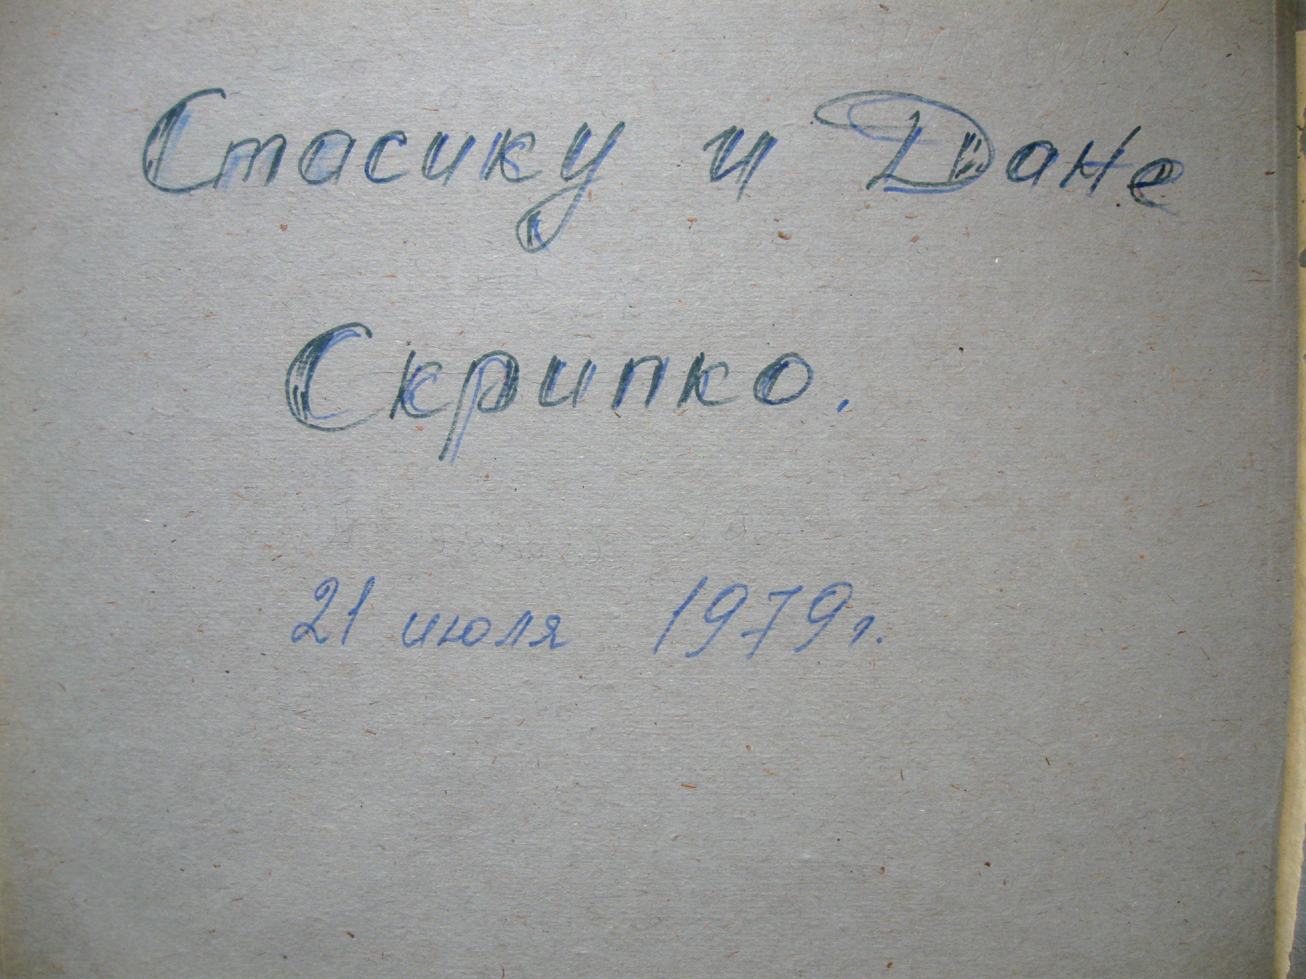 Стасику и Дане
Скрипко.
21 июля 1979 г.